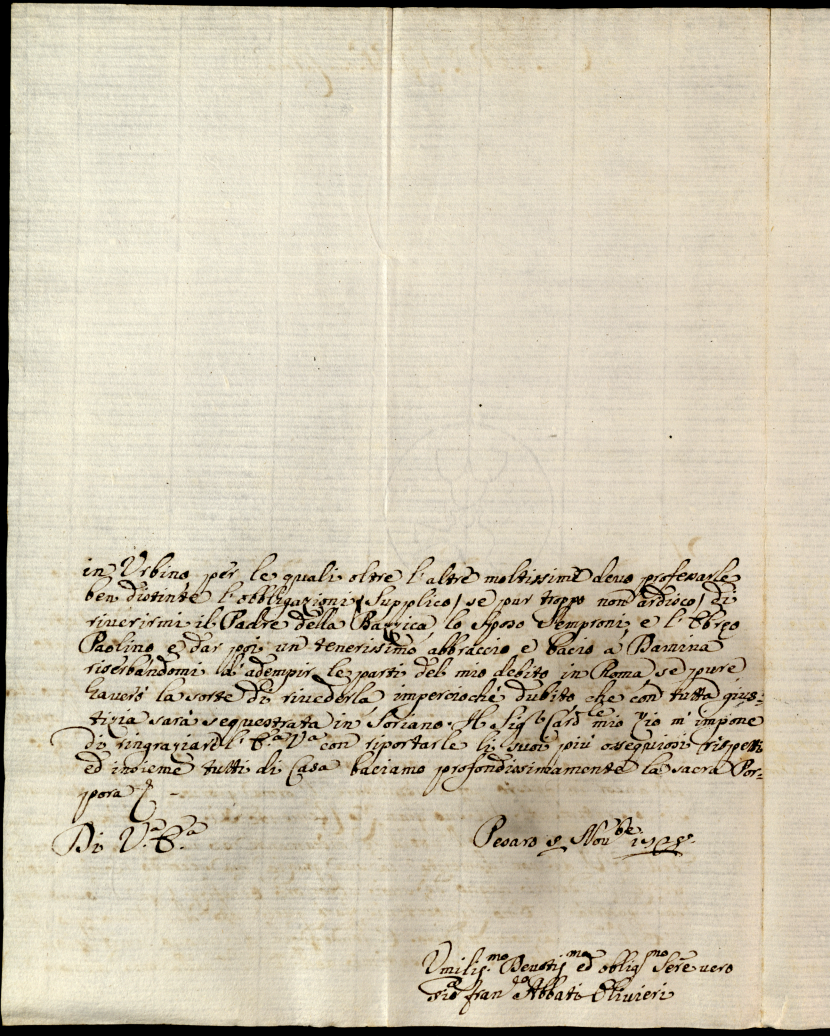 in Urbino, per le quali oltre l'altre moltissime devo professarle
ben distinte l'obbligazioni. Supplico / se pur troppo non ardisco / di
riverirmi il Padre della Barrica lo Sposo Semproni, e l'Ebreo
Paolino, e dar poi un tenerissimo abbraccio e bacio à
riserbandomi là adempir le parti del mio debito in Roma se pure
haverò la sorte di rivederla, imperciochè dubito che con tutta gius=
tizia sarà sequestrata in Soriano. Il Sig.r Card.le mio Zio m'impone
di ringraziare l'E.a V.a con riportarle li suoi più ossequiosi rispetti
ed insieme tutti di Casa baciamo profondissimamente la sacra Por=
pora
Di V.a E.a
Pesaro Nov.bre
Umiliss.mo Devotiss.mo ed obblig.mo Ser.re vero
Abbati Olivieri